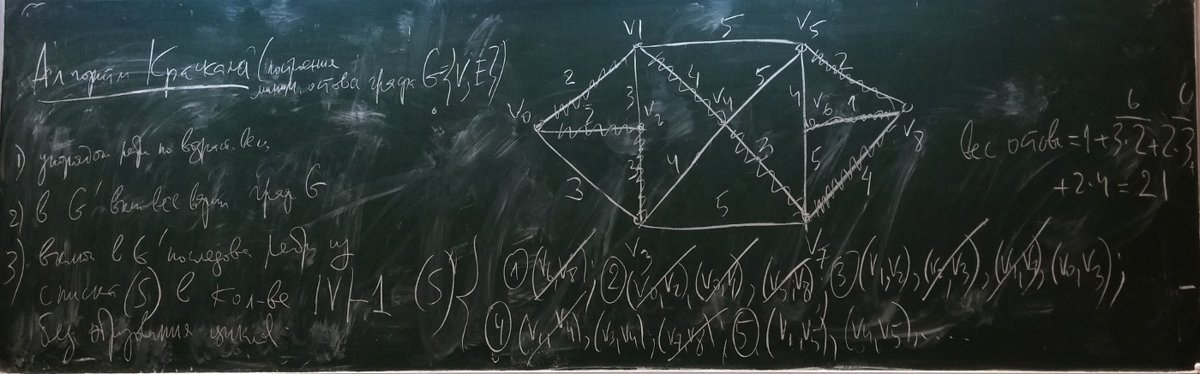 Алгоритм Краскала (построения
миним. остова графа G={V,E})
1) упорядоч. рёбр по возраст. веса
2) в G' включ все верш граф G
3) включ в G' последова рёбр из
списка (S) в кол-ве |V|-1
без образования циклов.
V1 5 V5
2 4 5 2
V0 2 3 V2 V4 4 V6 1 V8
3 2 4 3 5 4
V3 5 V7
вес остова = 1 + 3·2 + 2·3
6 6
+ 2·4 = 21
(S) { ① (V6,V8); ② (V0,V2), (V0,V1), (V5,V8); ③ (V1,V2), (V2,V3), (V4,V7), (V0,V3);
④ (V1,V4), (V3,V4), (V7,V8), ⑤ (V1,V5), (V4,V5), ...